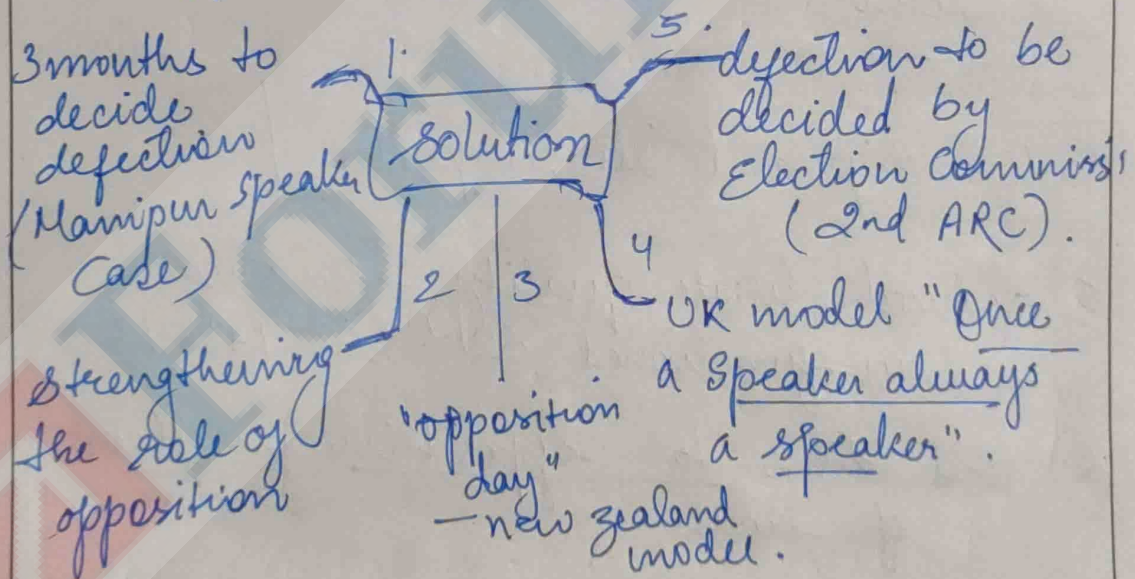 solution
1.
3 months to
decide
defection
(Manipur speaker
Case)
2
strengthening
the role of
opposition
3
"opposition
day"
– new zealand
model.
4
UK model "Once
a Speaker always
a speaker".
5.
defection to be
decided by
Election Commiss
(2nd ARC).